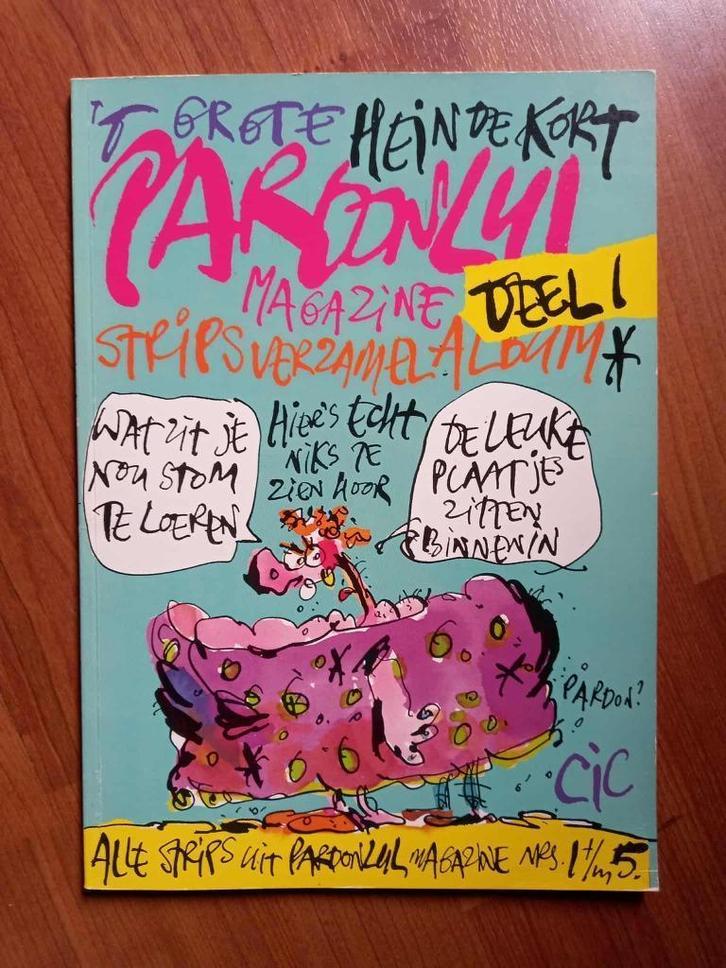 'T GROTE HEIN DE KORT
PARDONLUL
MAGAZINE
DEEL 1
STRIPSVERZAMELALBUM*
WAT ZIT JE
NOU STOM
TE LOEREN
HIER'S ECHT
NIKS TE
ZIEN HOOR
DE LEUKE
PLAATJES
ZITTEN
BINNENIN
PARDON?
CIC
ALLE STRIPS UIT PARDONLUL MAGAZINE NRS. 1 t/m 5.